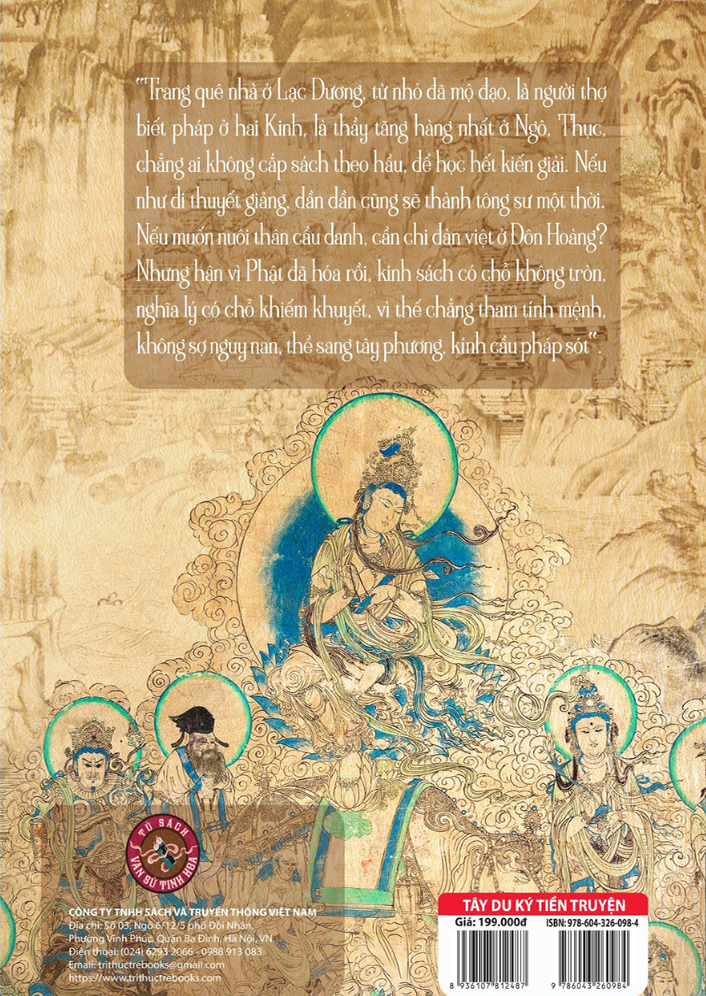 "Trang quê nhà ở Lạc Dương, từ nhỏ đã mộ đạo, là người thợ
biết pháp ở hai Kinh, là thầy tăng hàng nhất ở Ngô, Thục,
chẳng ai không cắp sách theo hầu, để học hết kiến giải. Nếu
như đi thuyết giảng, dần dần cũng sẽ thành tông sư một thời.
Nếu muốn nuôi thân cầu danh, cần chi đàn việt ở Đôn Hoàng?
Nhưng hận vì Phật đã hóa rồi, kinh sách có chỗ không tròn,
nghĩa lý có chỗ khiếm khuyết, vì thế chẳng tham tính mệnh,
không sợ nguy nan, thề sang tây phương, kính cầu pháp sót".
TỦ SÁCH
VĂN SỬ TINH HOA
CÔNG TY TNHH SÁCH VÀ TRUYỀN THÔNG VIỆT NAM
Địa chỉ: Số 03, Ngõ 6/12/5 phố Đội Nhân,
Phường Vĩnh Phúc, Quận Ba Đình, Hà Nội, VN
Điện thoại: (024) 6293 2066 - 0988 913 083
Email: trithuctrebooks@gmail.com
https://www.trithuctrebooks.com
TÂY DU KÝ TIỀN TRUYỆN
Giá: 199.000đ
ISBN: 978-604-326-098-4
8 936107 812487
9 786043 260984